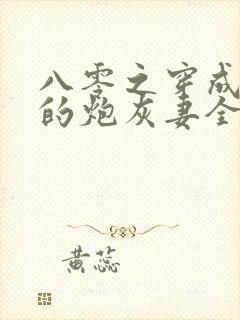 八零之穿成
的炮灰妻全
黄蕊